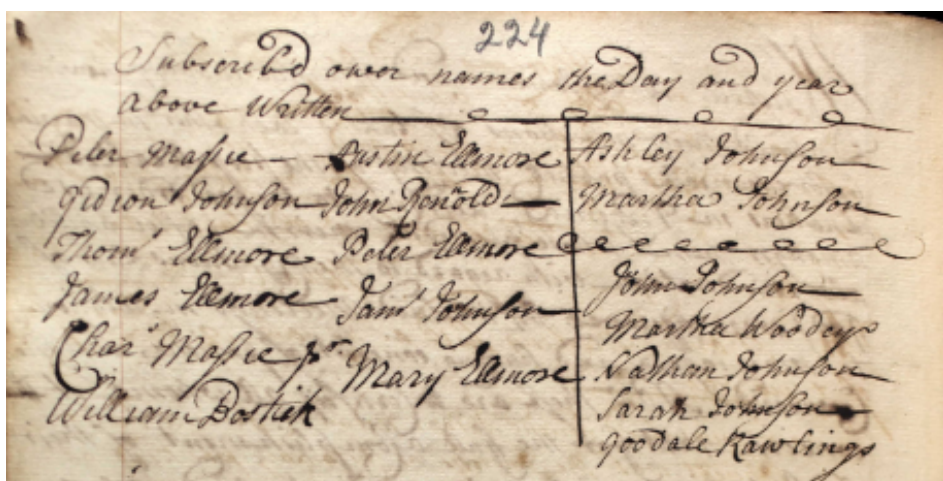 224
Subscrib'd ower names the Day and year
above Written
Peter Massie
Gidion Johnson
Thom.s Ellmore
James Ellmore
Char.s Massie jr.
William Bostick
Austin Ellmore
John Renold
Peter Ellmore
Sam.l Johnson
Mary Ellmore
Ashley Johnson
Martha Johnson
John Johnson
Martha Woodey
Nathan Johnson
Sarah Johnson
Goodale Rawlings